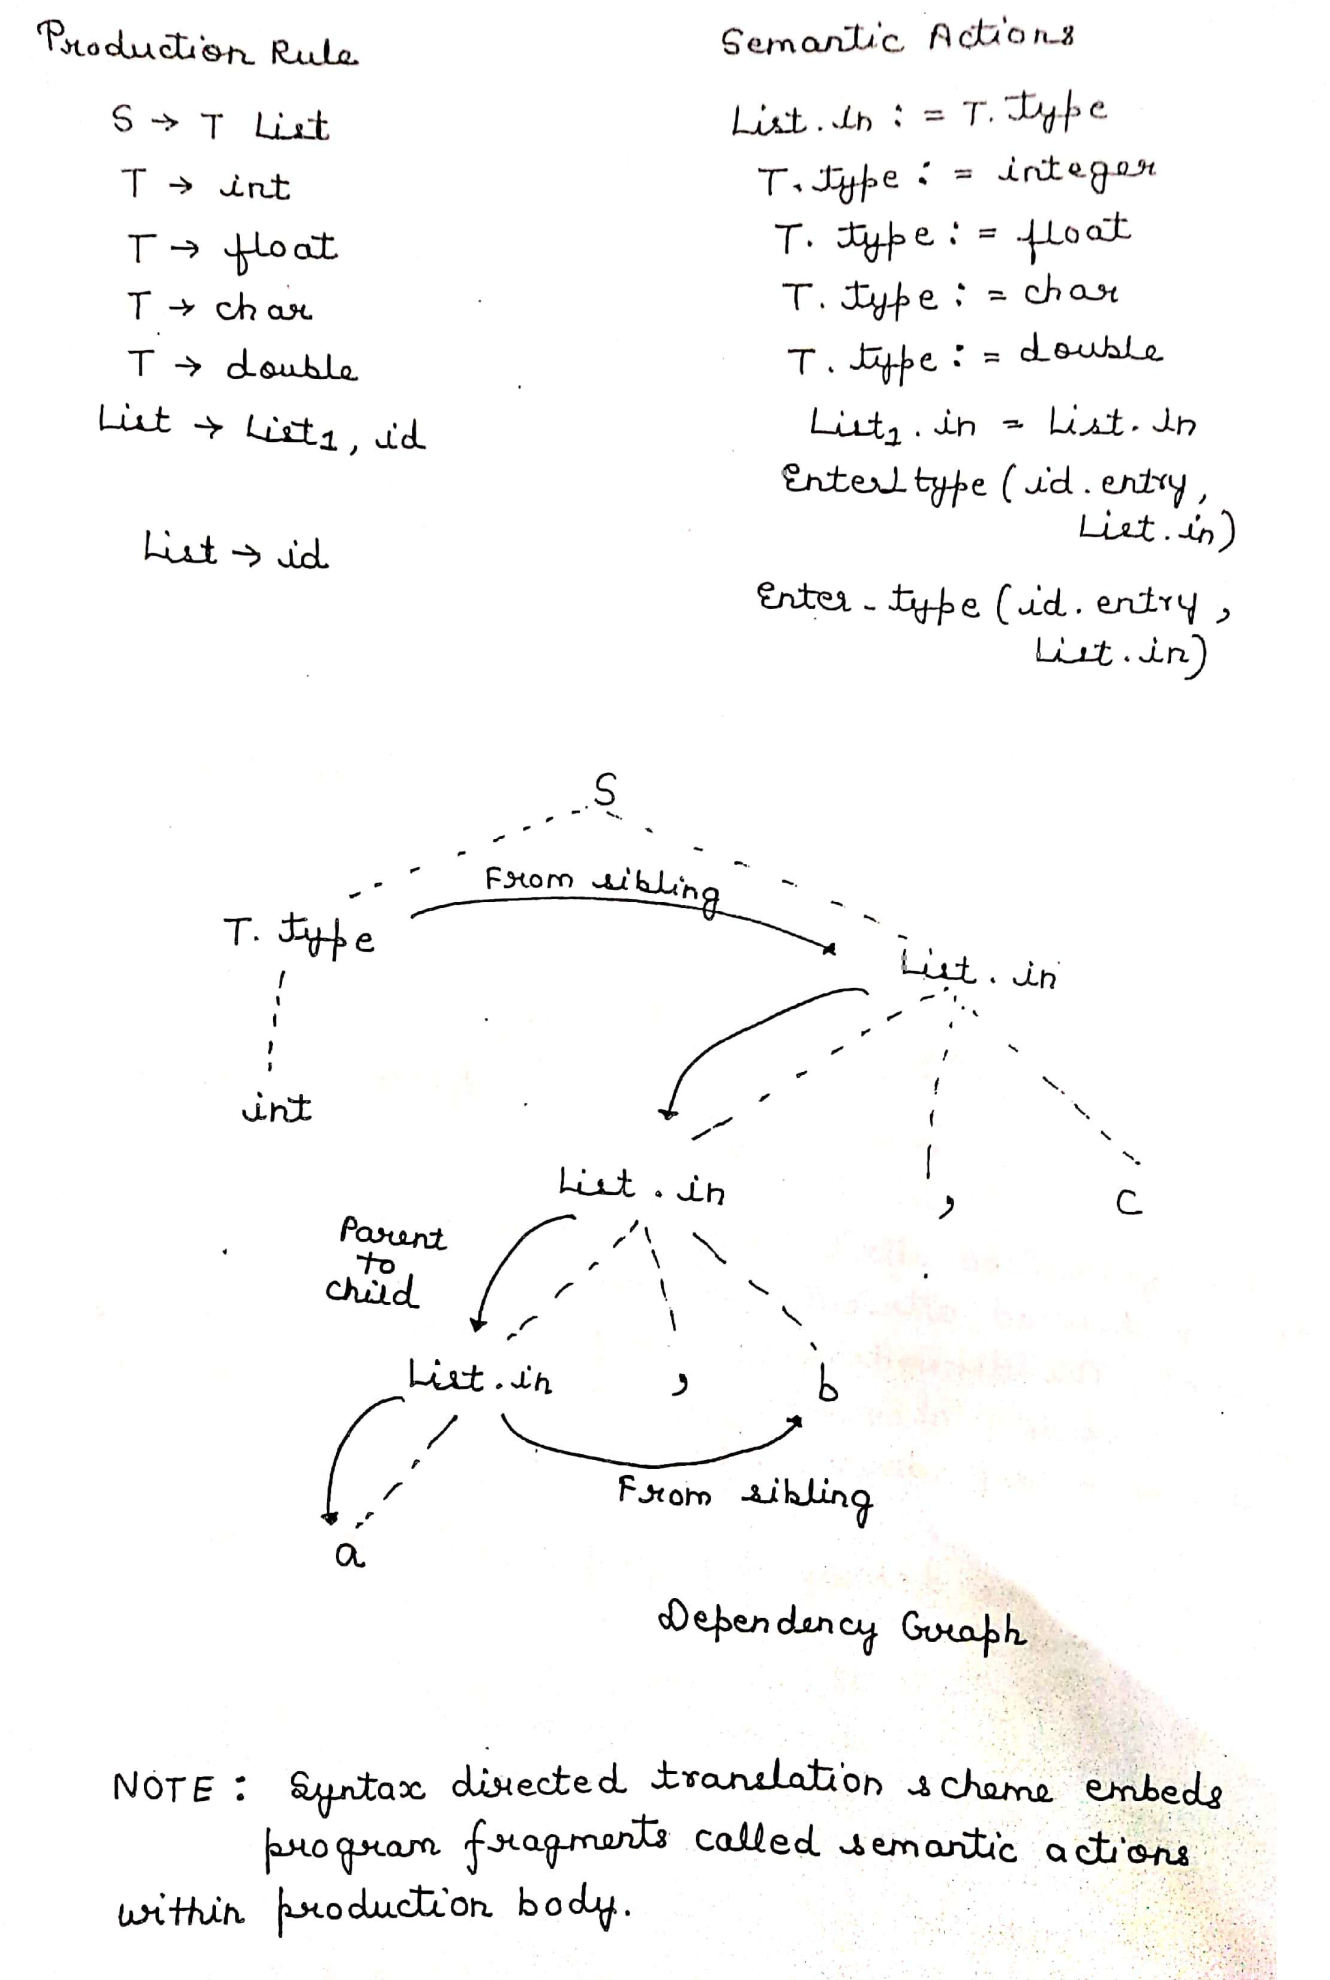 Production Rule Semantic Actions
S → T List List.in := T.type
T → int T.type := integer
T → float T.type := float
T → char T.type := char
T → double T.type := double
List → List1, id List1.in = List.in
Enter type (id.entry,
List.in)
List → id
Enter-type (id.entry,
List.in)
S
From sibling
T.type
List.in
int
List.in , c
Parent
to
child
List.in , b
From sibling
a
Dependency Graph
NOTE : Syntax directed translation scheme embeds
program fragments called semantic actions
within production body.